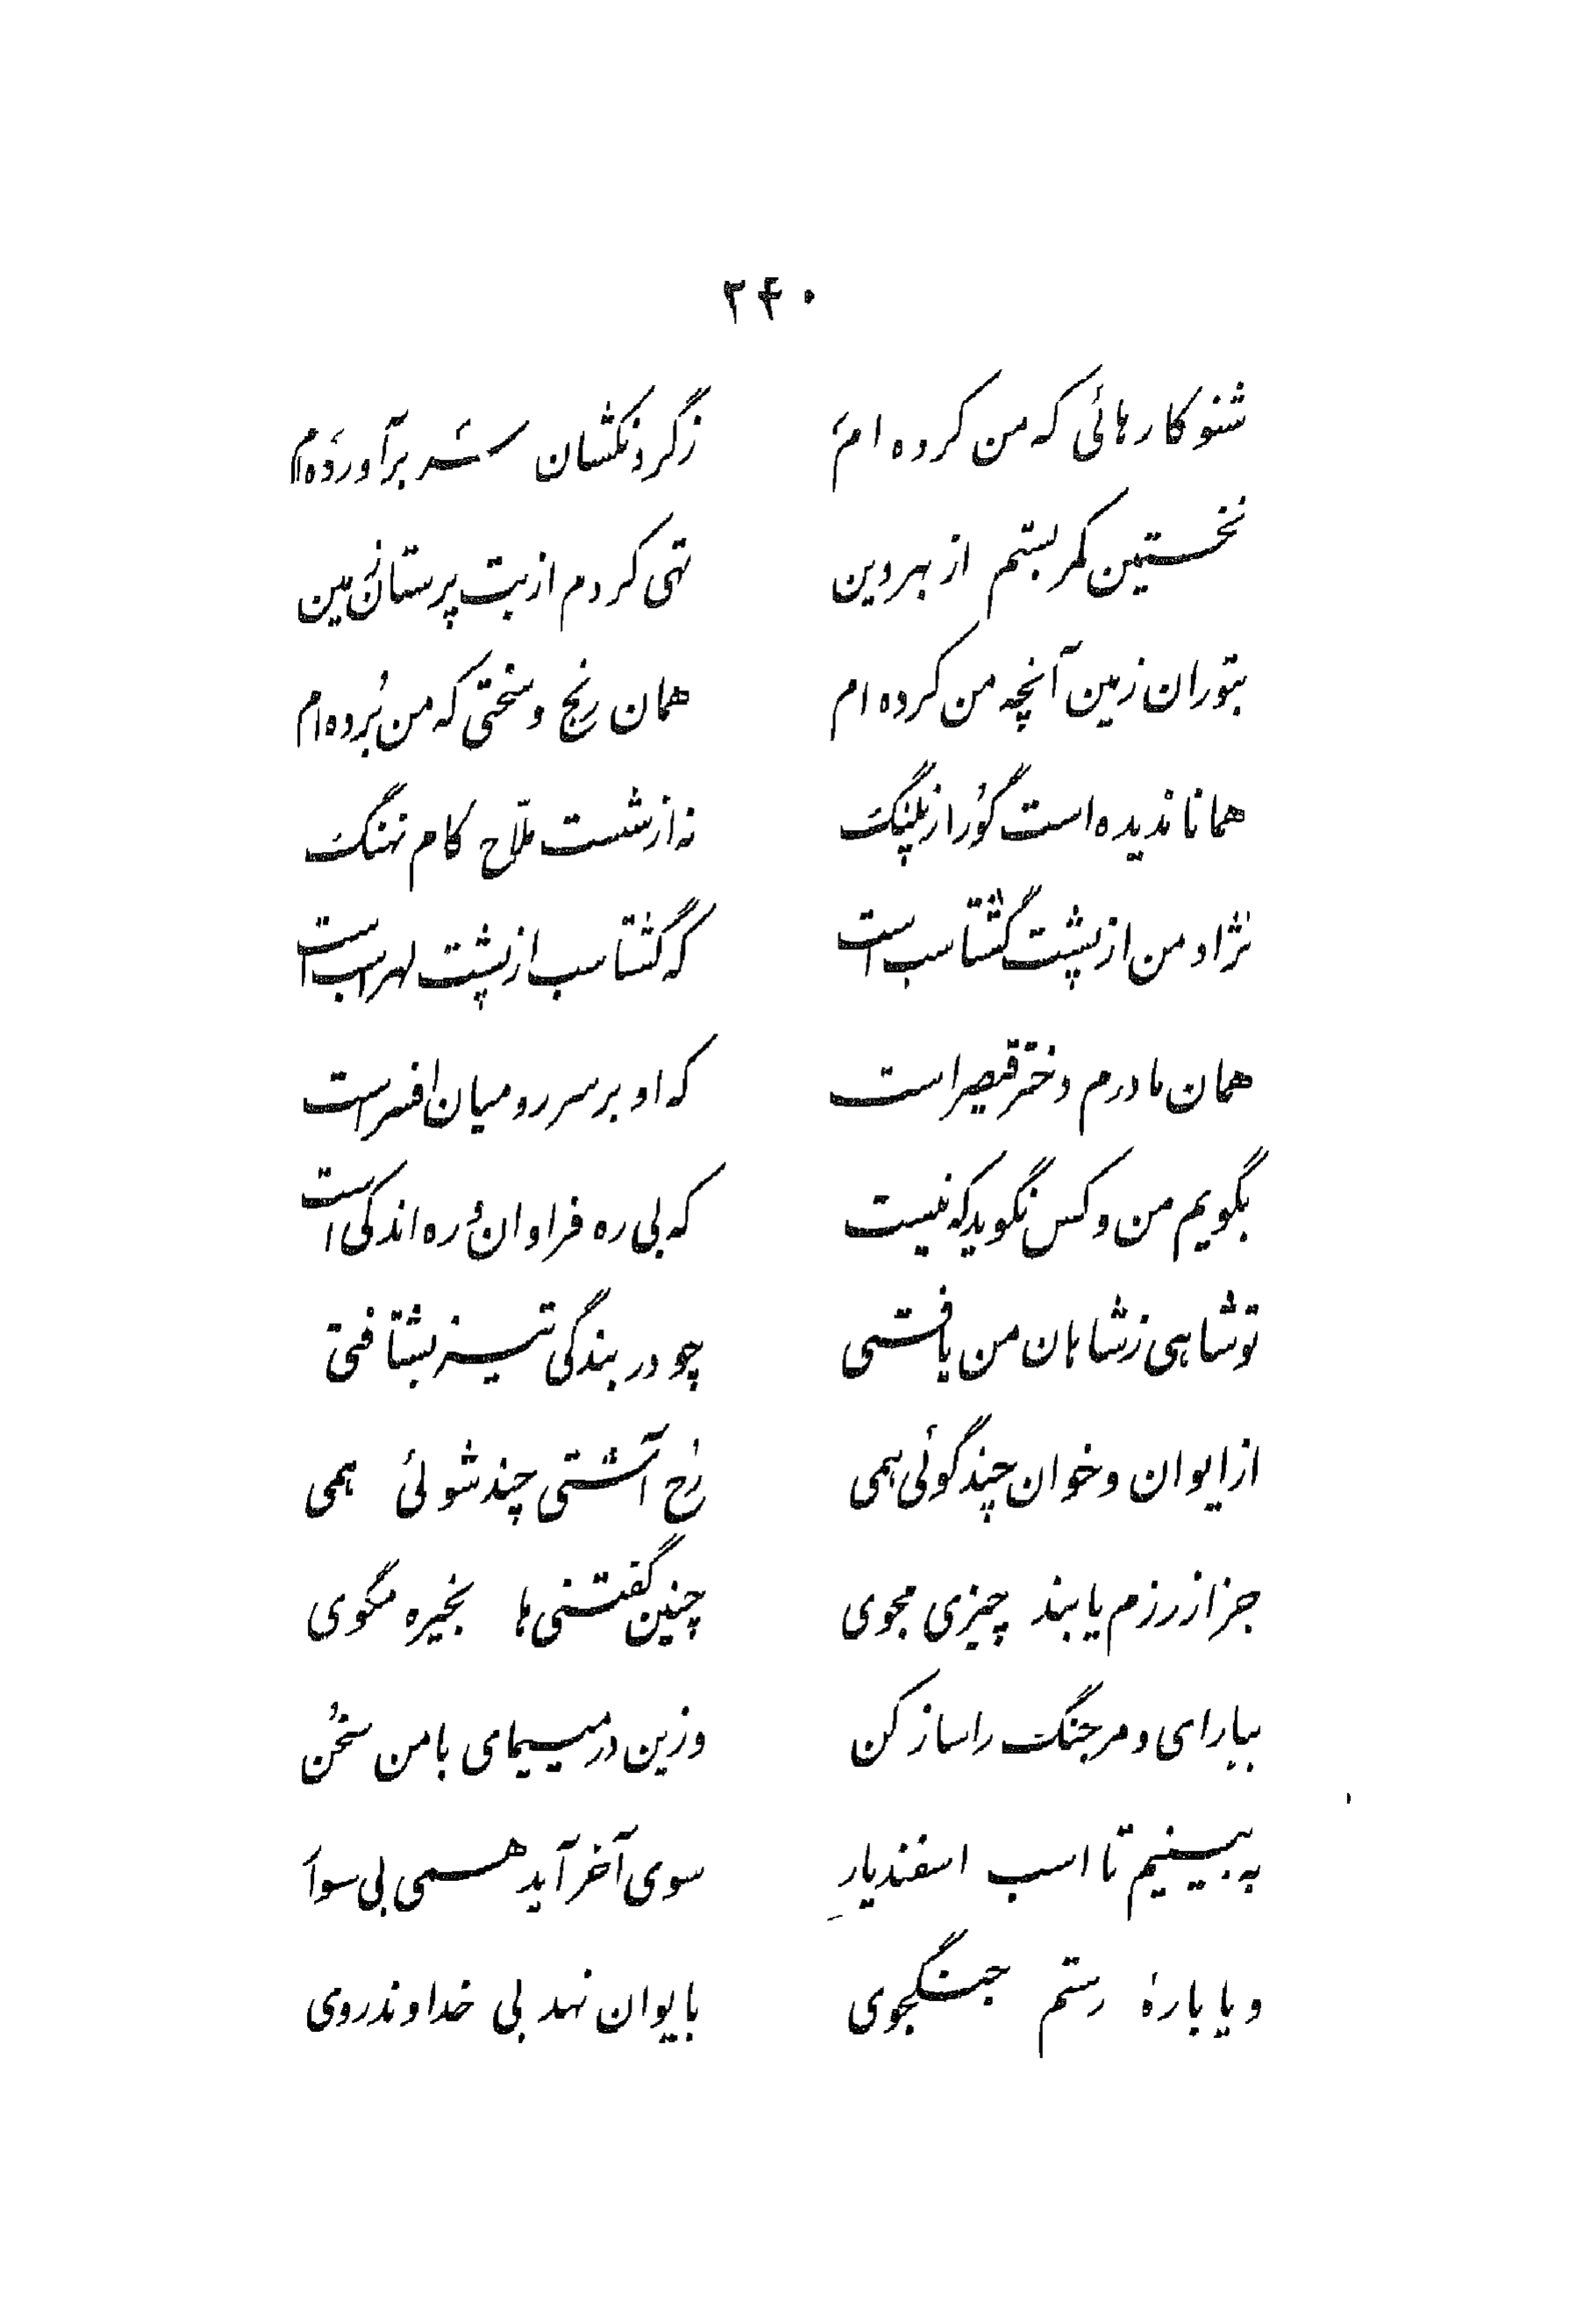 ۲۴۰
شنو کارهائی که من کرده ام ز گردنکشان سر برآورده ام
نخستین کمر بستم از بهر دین تهی کردم از بت پرستان زمین
بتوران زمین آنچه من کرده ام همان رنج و سختی که من بُرده ام
همانا ندیده است گور از پلنگ نه از شست ملّاح کام نهنگ
نژاد من از پشت گشتاسب است که گشتاسب از پشت لهراسب است
همان مادرم دختر قیصر است که او بر سر رومیان افسر است
بگویم من و کس نگوید که نیست که بی ره فراوان و ره اندکی است
تو شاهی ز شاهان من یافتی چو در بندگی تیز بشتافتی
از ایوان و خوان چند گوئی همی رخ آشتی چند شوئی همی
جز از رزم یا بند چیزی مجوی چنین گفتنی ها بخیره مگوی
بیارای و مر جنگ را ساز کن وزین در میسیمای با من سخُن
به بینیم تا اسب اسفندیار سوی آخر آید همی بی سوار
و یا بارۀ رستم جنگجوی بایوان نهد بی خداوند روی